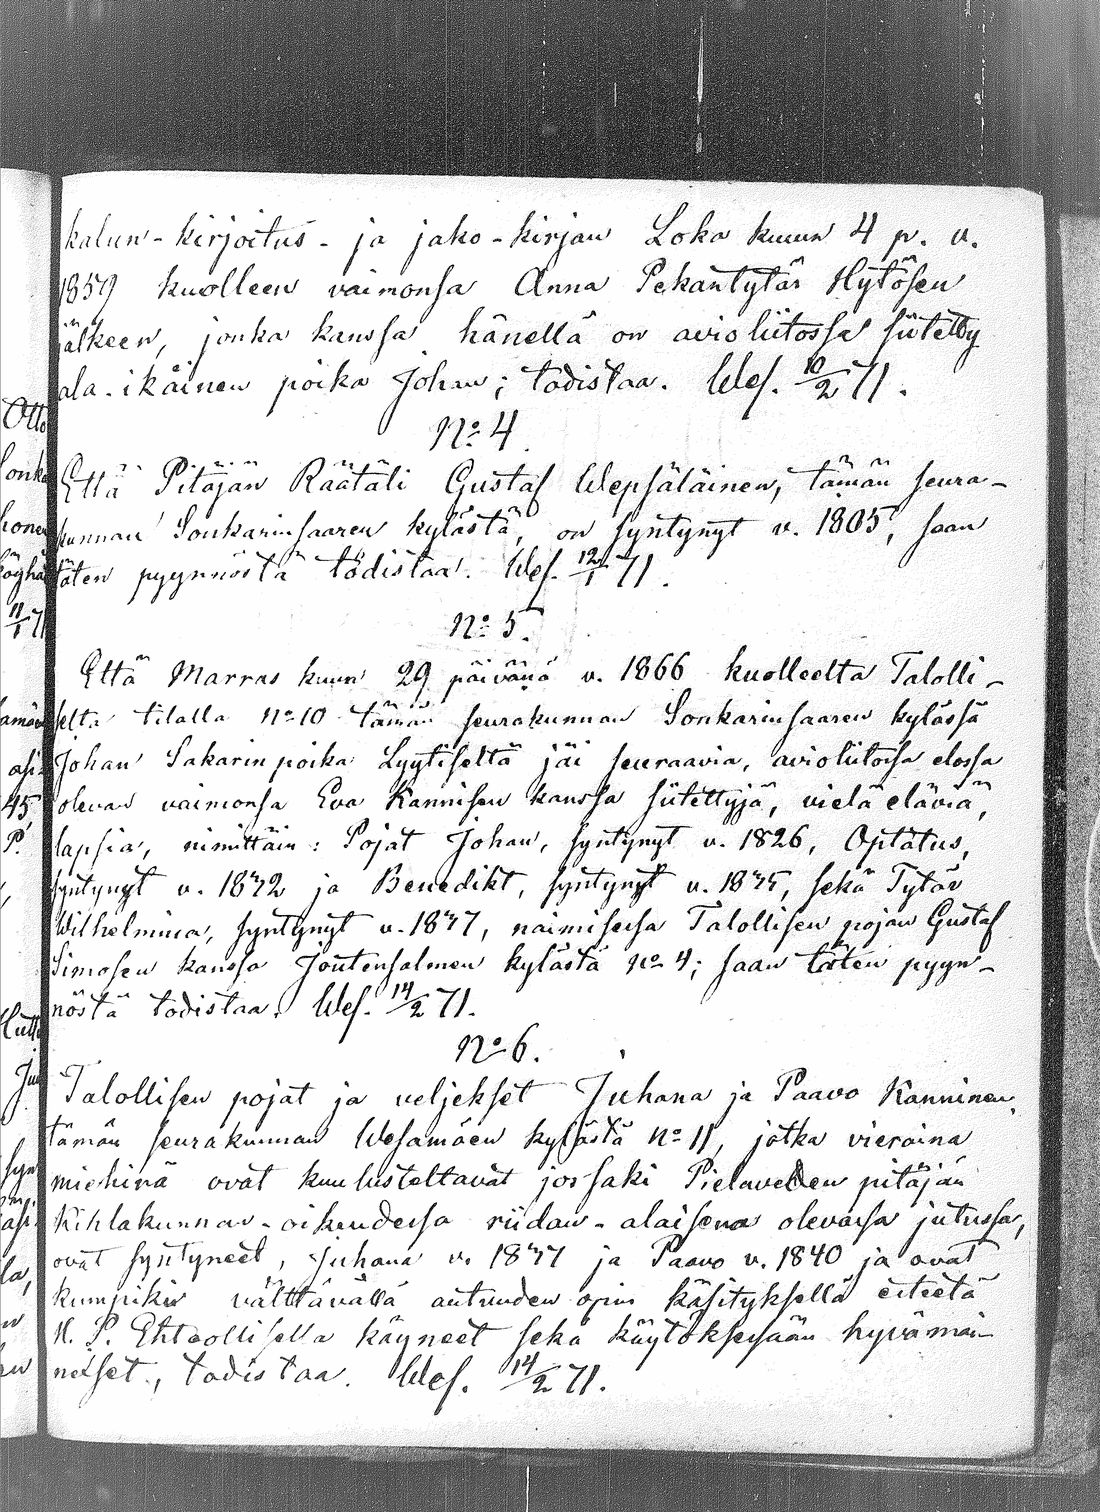 kalun-kirjoitus- ja jako-kirjan Loka kuun 4 p. v.
1859 kuolleen vaimonsa Anna Pekantytär Hytösen
jälkeen, jonka kanssa hänellä on avioliitossa siitetty
ala-ikäinen poika Johan; todistaa. Wes. 10/2 71.
No 4.
Että Pitäjän Räätäli Gustaf Wepsäläinen, tämän seura-
kunnan Sonkarinsaaren kylästä, on syntynyt v. 1805, saan
täten pyynnöstä todistaa. Wes. 12/1 71.
No 5.
Että Marras kuun 29 päivänä v. 1866 kuolleelta Talolli-
selta tilalla No 10 tämän seurakunnan Sonkarinsaaren kylässä
Johan Sakarinpoika Lyytiseltä jäi seuraavia, avioliitossa elossa
olevan vaimonsa Eva Kannisen kanssa siitettyjä, vielä eläviä,
lapsia, nimittäin: Pojat Johan, syntynyt v. 1826, Optatus,
syntynyt v. 1832 ja Benedikt, syntynyt v. 1835, sekä Tytär
Wilhelmina, syntynyt v. 1837, naimisessa Talollisen pojan Gustaf
Simosen kanssa Joutensalmen kylästä No 4; saan täten pyyn-
nöstä todistaa. Wes. 14/2 71.
No 6.
Talollisen pojat ja veljekset Juhana ja Paavo Kanninen,
tämän seurakunnan Wesamäen kylästä No 11, jotka vieraina
miehinä ovat kuulusteltavat jossaki Pielaveden pitäjän
Kihlakunnan-oikeudessa riidan-alaisena olevassa jutussa,
ovat syntyneet, Juhana v. 1837 ja Paavo v. 1840 ja ovat
kumpikin välttävällä autuuden opin käsityksellä
H. P. Ehtoollisella käyneet sekä käytöksessään hyvämai-
neiset, todistaa. Wes. 14/2 71.